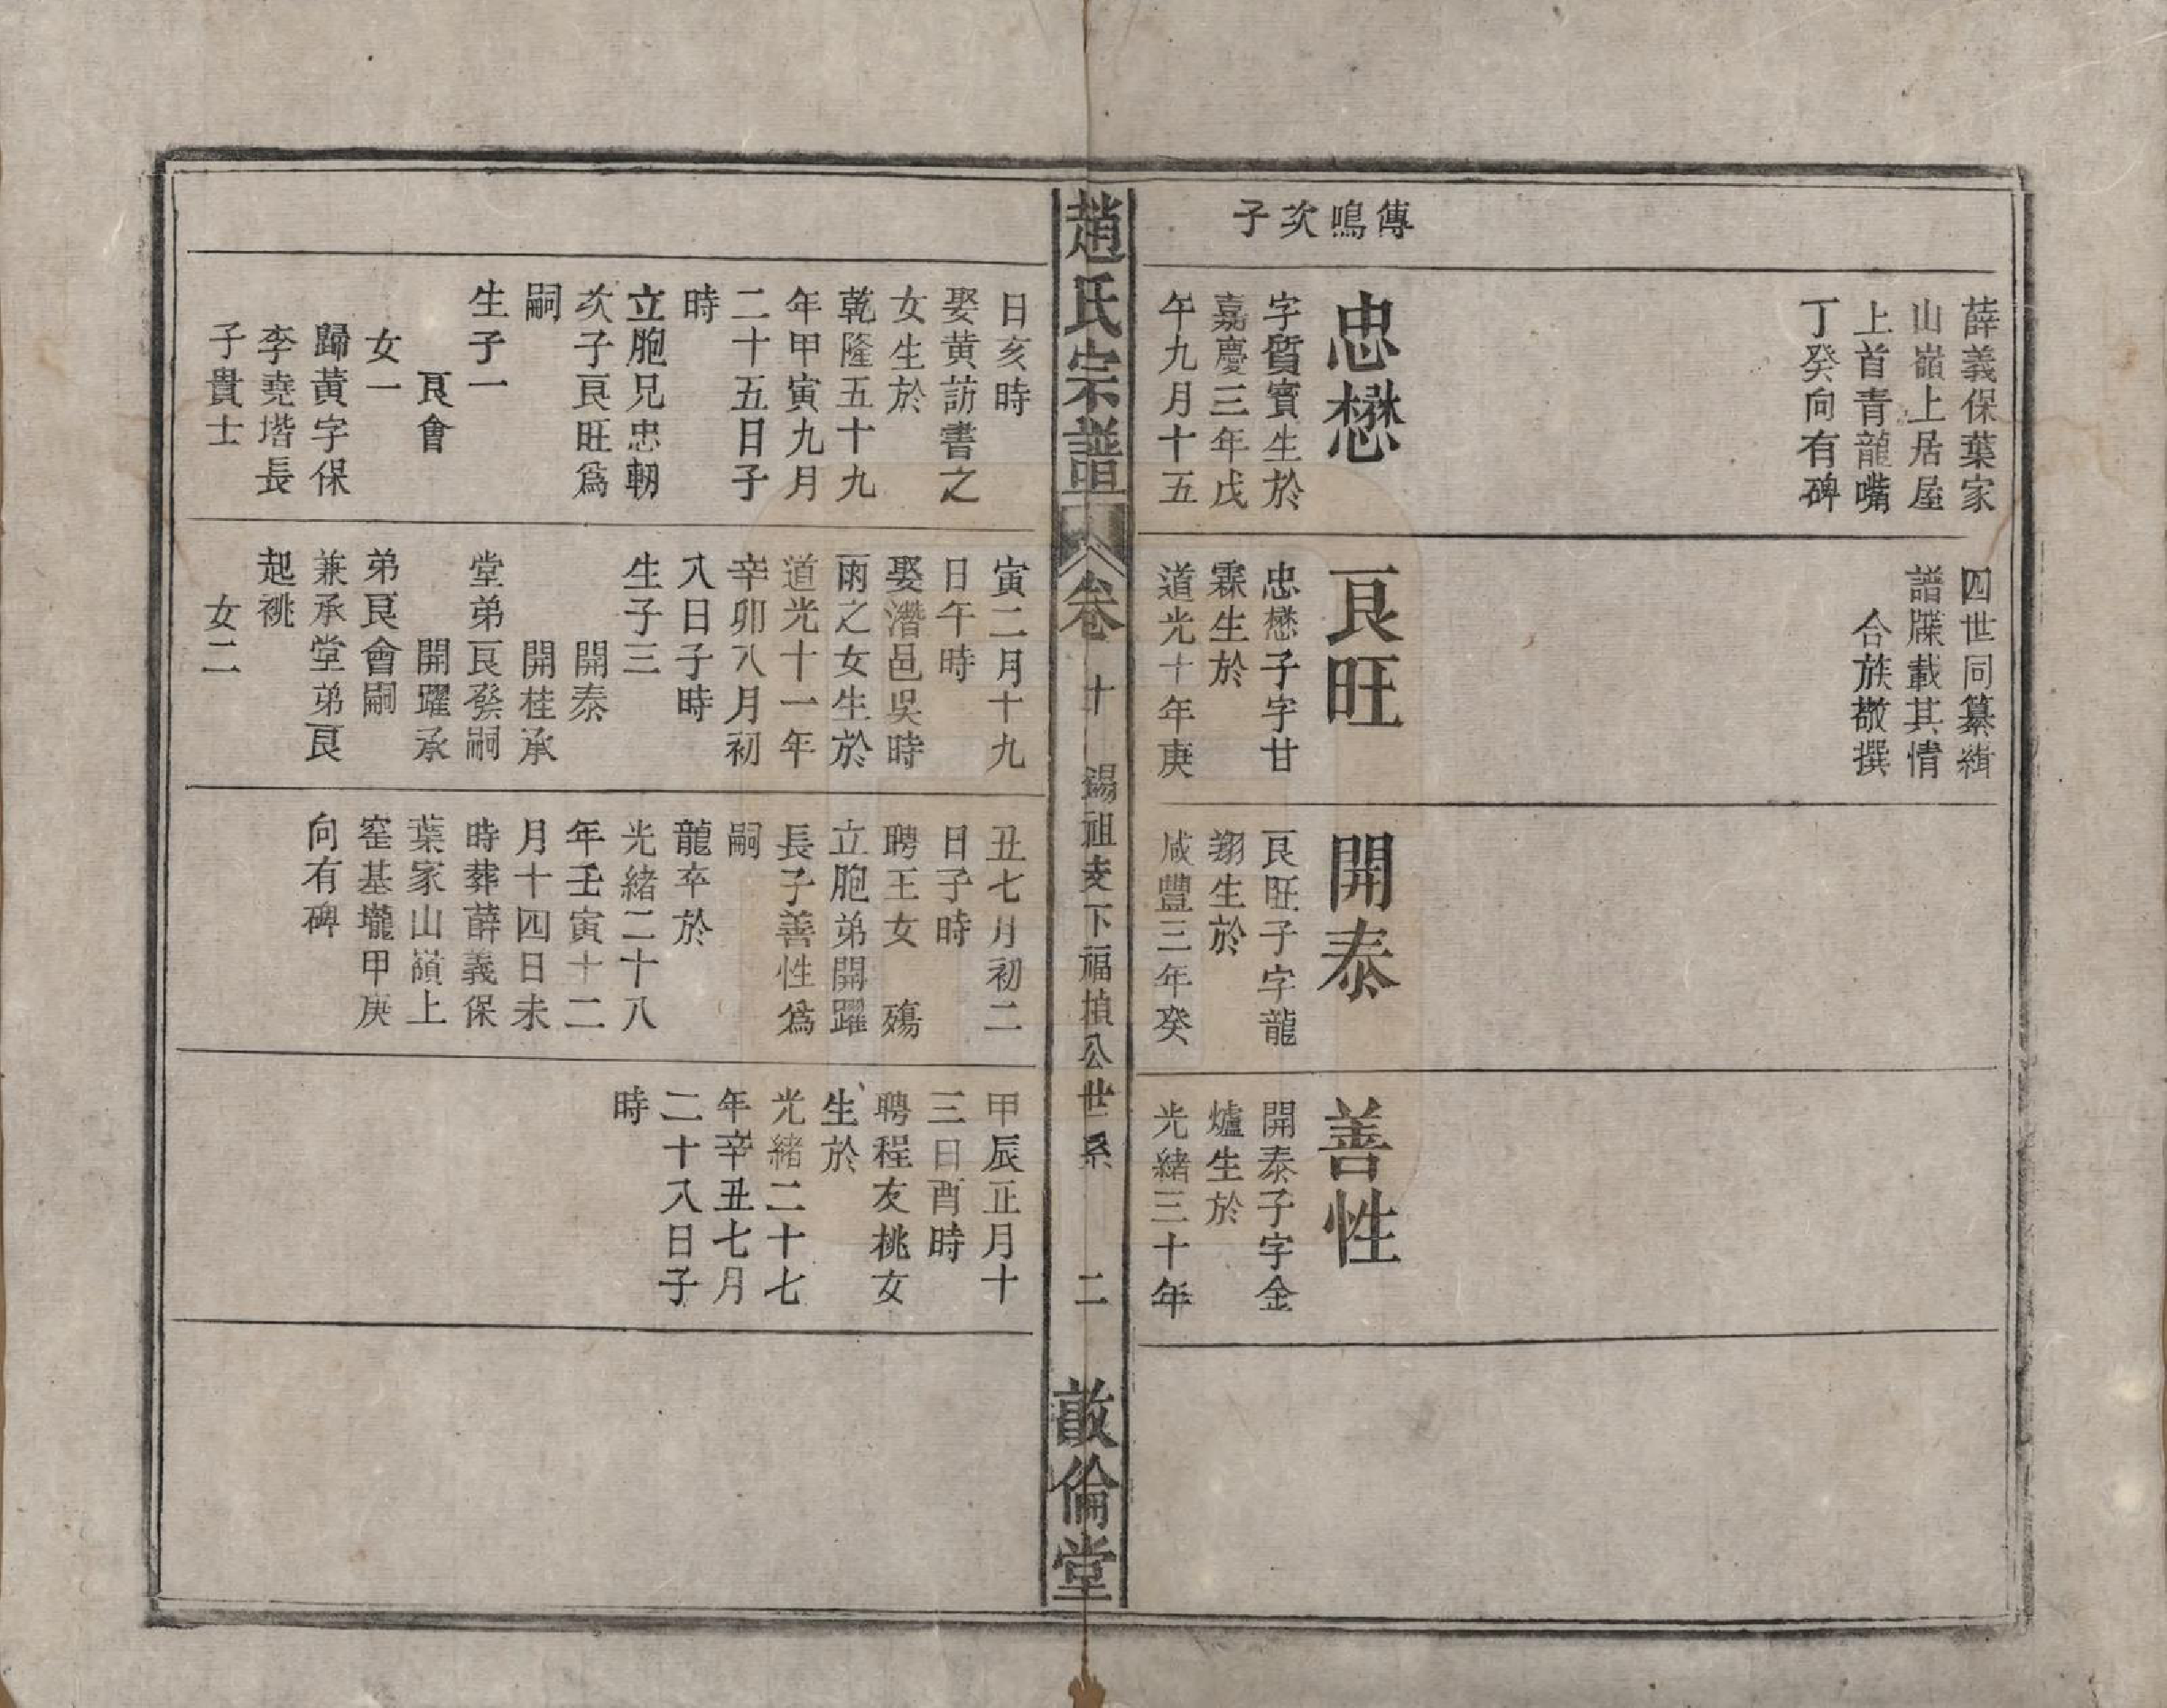 傳鳴次子
薛義保葉家
山嶺上居屋
上首青龍嘴
丁癸向有碑
忠懋
字質賓生於
嘉慶三年戊
午九月十五
四世同纂緝
譜牒載其情
合族敬撰
艮旺
忠懋子字甘
霖生於
道光十年庚
開泰
艮旺子字龍
翔生於
咸豐三年癸
善性
開泰子字金
爐生於
光緒三十年
趙氏宗譜
卷十
錫祖支下福楨公世系
二
敬倫堂
日亥時
娶黃訪書之
女生於
乾隆五十九
年甲寅九月
二十五日子
時
立胞兄忠朝
次子艮旺爲
嗣
生子一
艮會
女一
歸黃字保
李堯堦長
子貴士
寅二月十九
日午時
娶潛邑吳時
雨之女生於
道光十一年
辛卯八月初
八日子時
生子三
開泰
開桂承
堂弟艮發嗣
開躍承
弟艮會嗣
兼承堂弟艮
起祧
女二
丑七月初二
日子時
聘王女 殤
立胞弟開躍
長子善性爲
嗣
龍卒於
光緒二十八
年壬寅十二
月十四日未
時葬薛義保
葉家山嶺上
窑基壠甲庚
向有碑
甲辰正月十
三日酉時
聘程友桃女
生於
光緒二十七
年辛丑七月
二十八日子
時